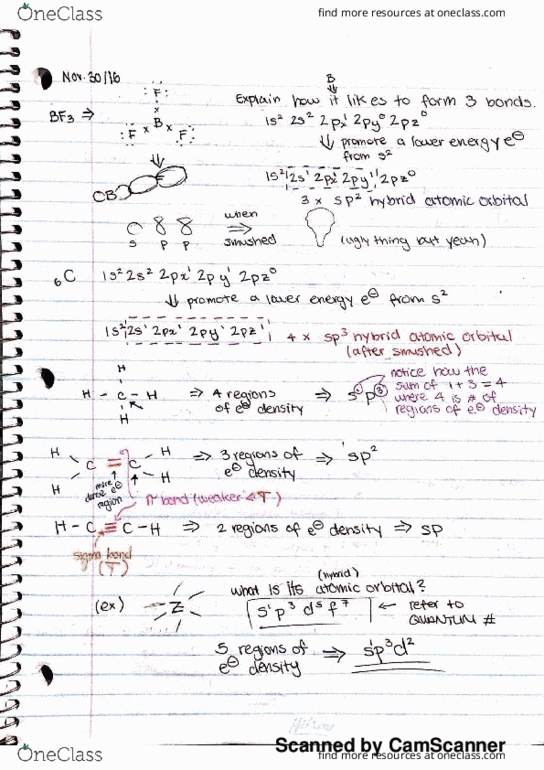 OneClass
find more resources at oneclass.com
Nov. 30/16
BF3 ⇒
:F:
x
B
:F x x F:
B
Explain how it likes to form 3 bonds.
1s² 2s² 2px¹ 2py⁰ 2pz⁰
⇓ promote a lower energy e⊖ from s²
1s² 2s¹ 2px¹ 2py¹ 2pz⁰
3 x sp² hybrid atomic orbital
s p p
when smushed ⇒
(ugly thing but yeah)
₆C 1s² 2s² 2px¹ 2py¹ 2pz⁰
⇓ promote a lower energy e⊖ from s²
1s² 2s¹ 2px¹ 2py¹ 2pz¹
4 x sp³ hybrid atomic orbital
(after smushed)
H
H - C - H
H
⇒ 4 regions of e⊖ density ⇒ s¹p³
notice how the
sum of 1 + 3 = 4
where 4 is # of
regions of e⊖ density
H H
C = C
H H
more dense e⊖ region
⇒ 3 regions of e⊖ density ⇒ ¹sp²
π bond (weaker
H - C ≡ C - H ⇒ 2 regions of e⊖ density ⇒ sp
sigma bond
(ex) Z
what is its (hybrid) atomic orbital?
s¹p³d⁵f⁷ ← refer to QUANTUM #
5 regions of e⊖ density ⇒ s¹p³d²
Scanned by CamScanner
OneClass
find more resources at oneclass.com